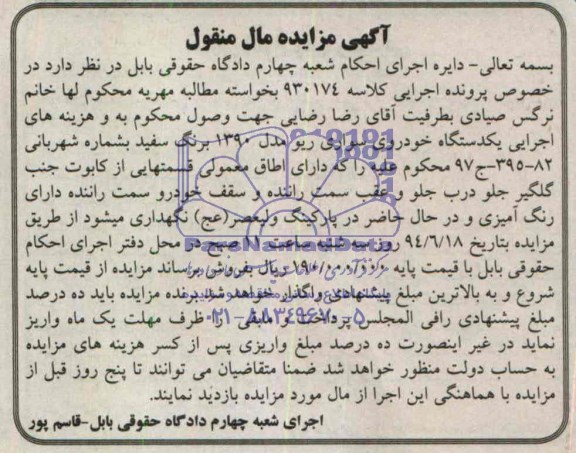 آگهی مزایده مال منقول
بسمه تعالی- دایره اجرای احکام شعبه چهارم دادگاه حقوقی بابل در نظر دارد در
خصوص پرونده اجرایی کلاسه ۹۳۰۱۷۴ بخواسته مطالبه مهریه محکوم لها خانم
نرگس صیادی بطرفیت آقای رضا رضایی جهت وصول محکوم به و هزینه های
اجرایی یکدستگاه خودروی سواری ریو مدل ۱۳۹۰ برنگ سفید بشماره شهربانی
۸۲-۳۹۵ج۹۷ محکوم علیه را که دارای اطاق معمولی قسمتهایی از کاپوت جنب
گلگیر جلو درب جلو و عقب سمت راننده و سقف خودرو سمت راننده دارای
رنگ آمیزی و در حال حاضر در پارکینگ ولیعصر(عج) نگهداری میشود از طریق
مزایده بتاریخ ۹۴/۶/۱۸ روز ساعت صبح در محل دفتر اجرای احکام
حقوقی بابل با قیمت پایه ریال بفروش برساند مزایده از قیمت پایه
شروع و به بالاترین مبلغ پیشنهادی واگذار خواهد شد برنده مزایده باید ده درصد
مبلغ پیشنهادی رافی المجلس پرداخت و مابقی را ظرف مهلت یک ماه واریز
نماید در غیر اینصورت ده درصد مبلغ واریزی پس از کسر هزینه های مزایده
به حساب دولت منظور خواهد شد ضمنا متقاضیان می توانند تا پنج روز قبل از
مزایده با هماهنگی این اجرا از مال مورد مزایده بازدید نمایند.
اجرای شعبه چهارم دادگاه حقوقی بابل-قاسم پور
ParsNamadData
۰۲۱-۸۸۳۴۹۶۷۰-۵